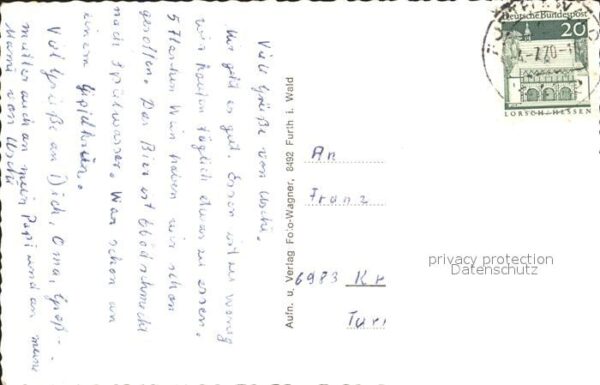 Viele Grüße von Uschi.
Mir geht es gut. Essen ist zu wenig
wir kaufen täglich etwas zu essen.
5 Flaschen Wein haben wir schon
gesoffen. Das Bier ist blöd schmeckt
nach Spülwasser. War schon an
einem
Viel Grüße an Dich, Oma, Groß-
mutter auch an mein Papi und an meine
Mami von Uschi
Aufn. u. Verlag Foto-Wagner, 8492 Furth i. Wald
Deutsche Bundespost
20
LORSCH/HESSEN
An
Franz
6983 Kr
Tur
privacy protection
Datenschutz